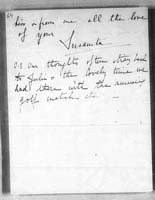 him & from me all the love
of your
Susanita
P.S. Our thoughts often stray back
to Julia & the lovely time we
had there with the amusing
golf match etc —